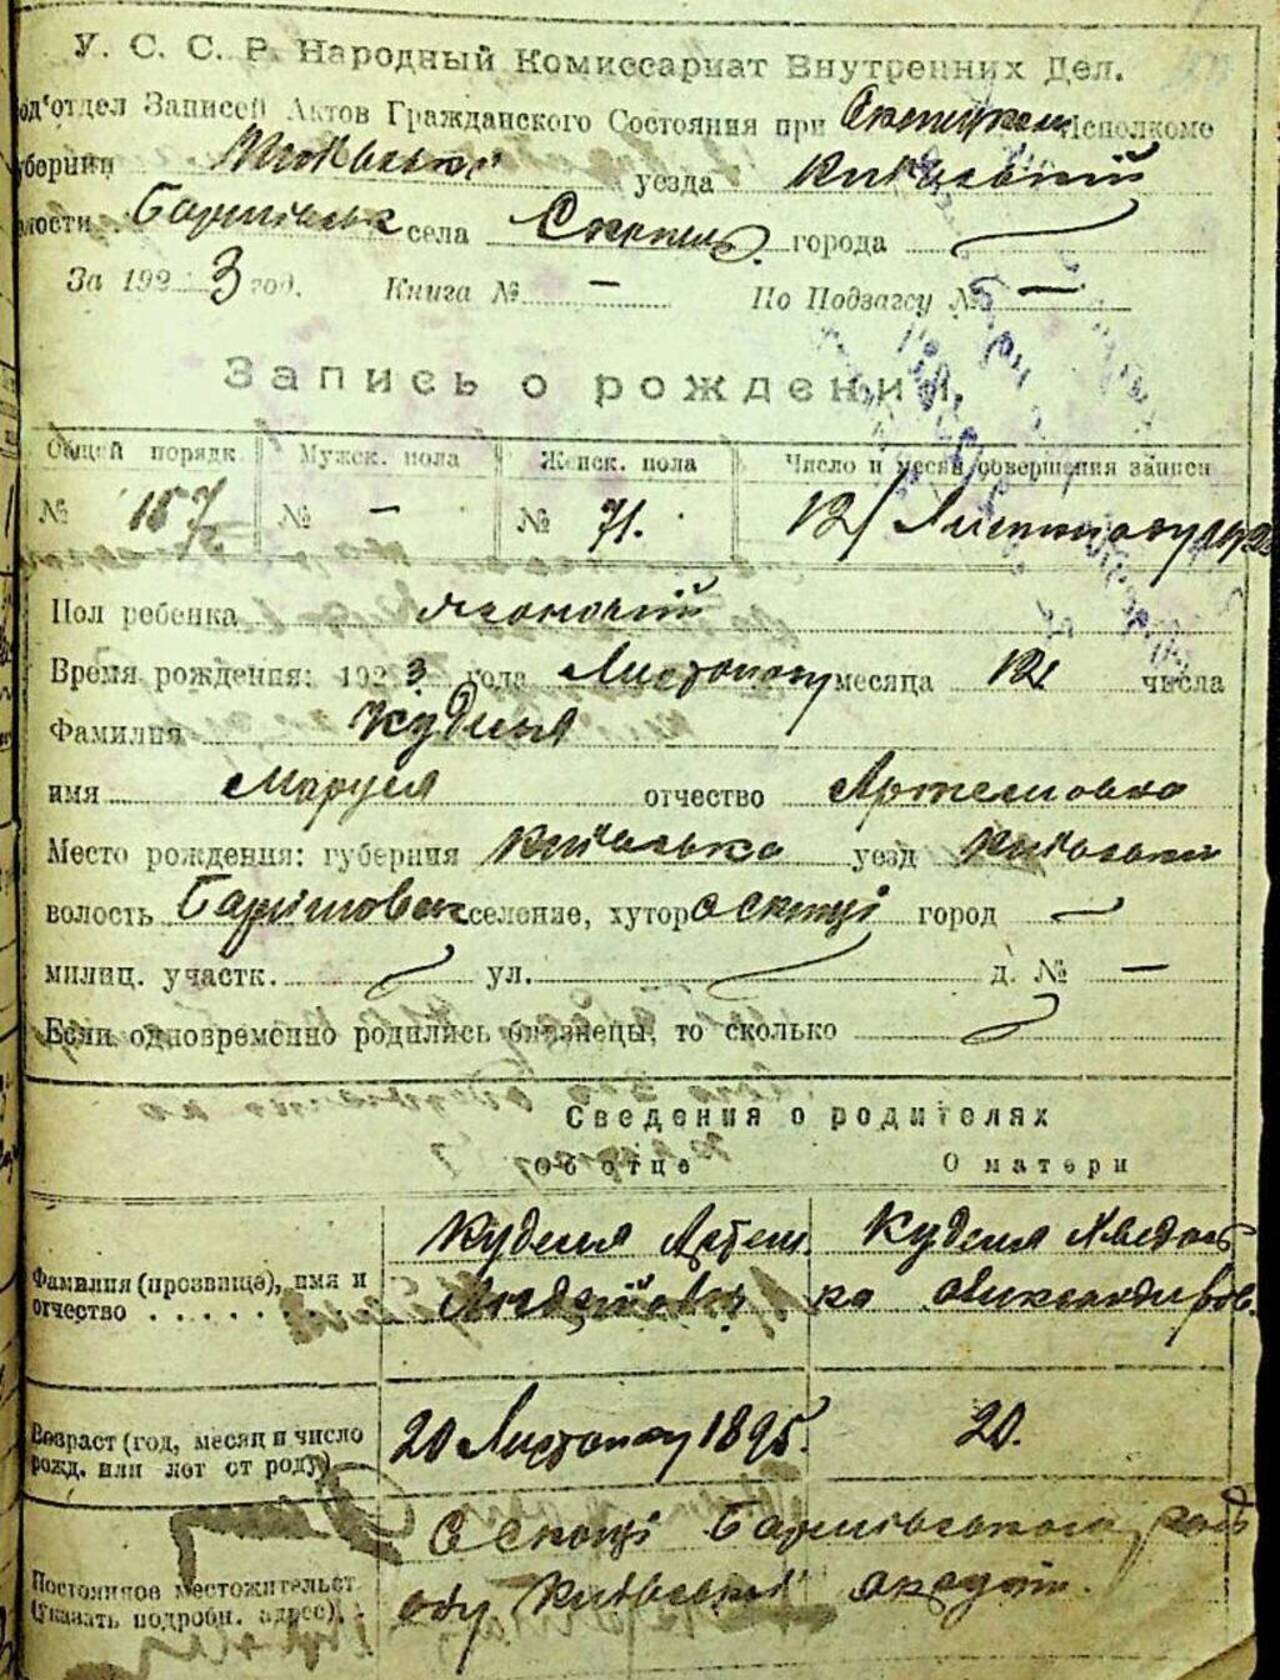 У. С. С. Р. Народный Комиссариат Внутренних Дел.
од'отдел Записей Актов Гражданского Состояния при Скопцком Исполкоме
уберния Київська уезда Київський
лости Баришівськ села Скопці города
За 1923 год. Книга № — По Подзагсу № —
Запись о рождении.
Общей порядк Мужск. пола Женск. пола Число и месяц совершения записи
№ 157 № — № 71. 12/ Листопаду 1923
Пол ребенка жіночий
Время рождения: 1923 года Листопаду месяца 12 числа
Фамилия Куделя
имя Маруся отчество Артемовна
Место рождения: губерния Київська уезд Київський
волость Баришовск селение, хутор с Скопці город —
милиц. участк. ул. д. № —
Если одновременно родились близнецы, то сколько
Сведения о родителях
Об отце О матери
Фамилия (прозвище), имя и отчество . . . . .
Куделя Артем
Куделя Хведось
ка Александров.
Возраст (год, месяц и число рожд. или лет от роду)
20 Листопаду 1895.
20.
Постоянное местожительст (указать подробн. адрес).
с Скопці Баришівського рай
ону Київської округи.